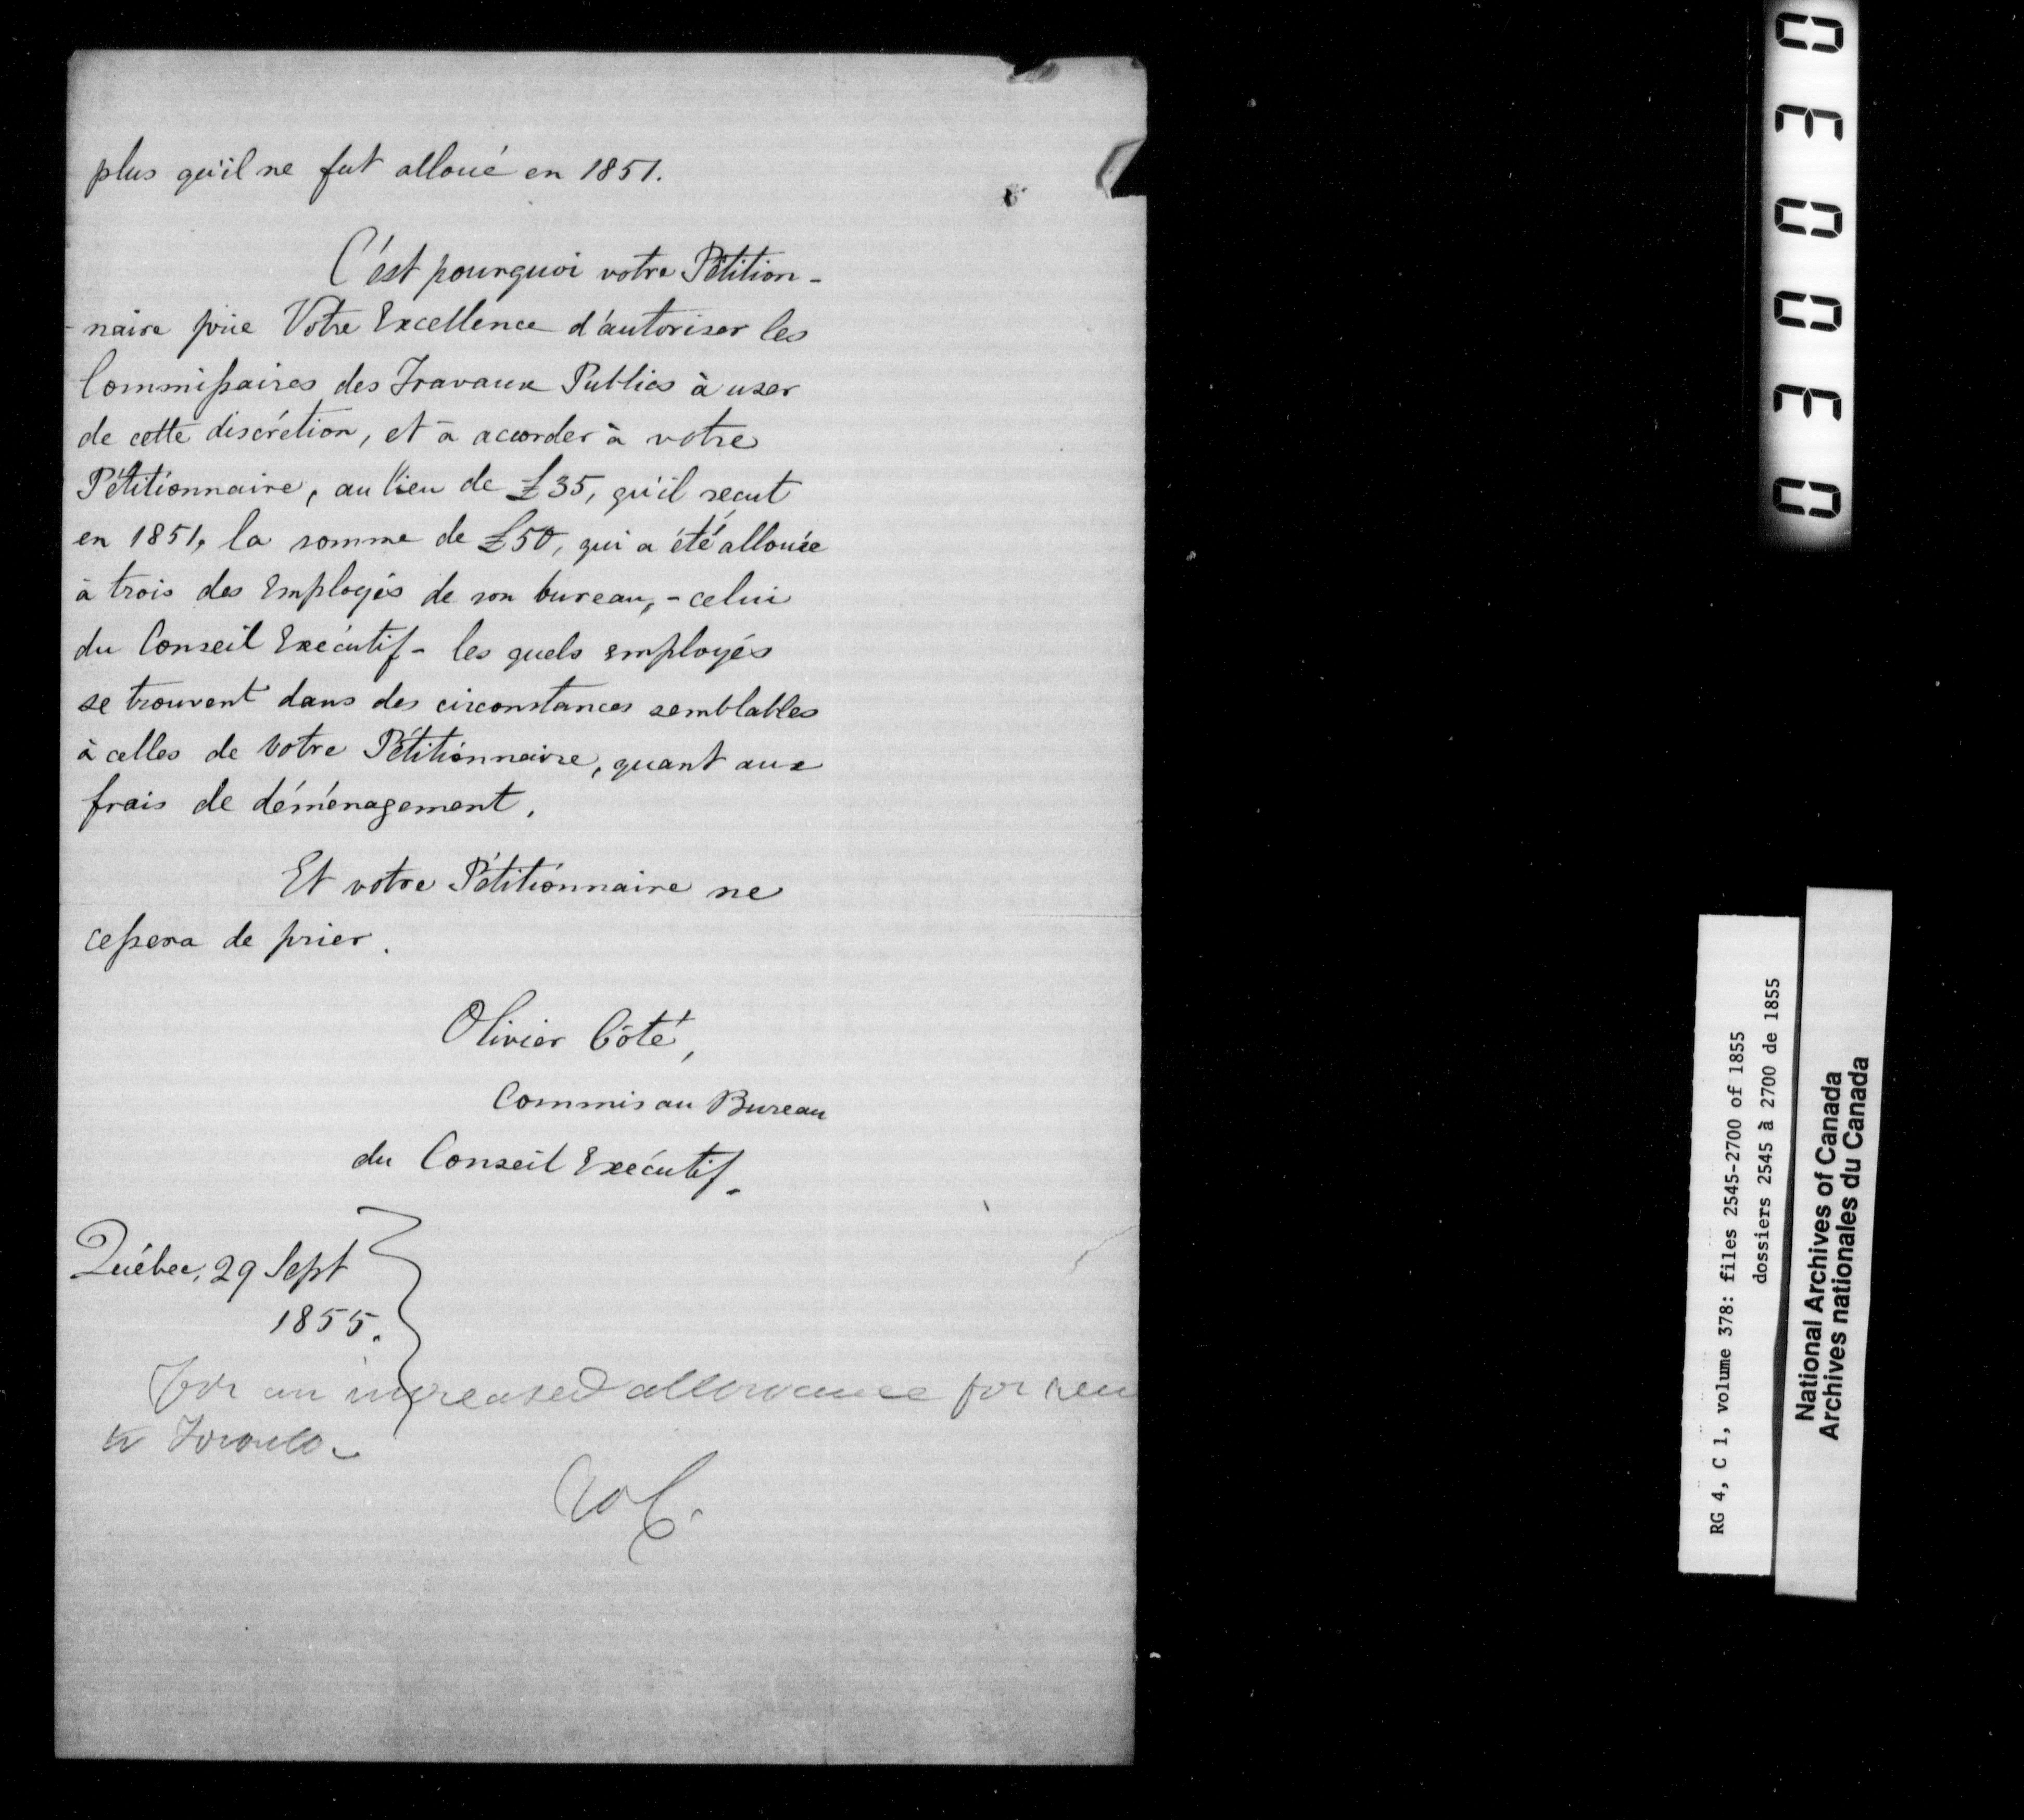 plus qu'il ne fut alloué en 1851.
C'est pourquoi votre Pétition-
-naire prie Votre Excellence d'autoriser les
Commissaires des Travaux Publics à user
de cette discrétion, et à accorder à votre
Pétitionnaire, au lieu de £35, qu'il reçut
en 1851, la somme de £50, qui a été allouée
à trois des Employés de son bureau, - celui
du Conseil Exécutif - les quels employés
se trouvent dans des circonstances semblables
à celles de votre Pétitionnaire, quant aux
frais de déménagement.
Et votre Pétitionnaire ne
cessera de prier.
Olivier Côté,
Commis au Bureau
du Conseil Exécutif.
Québec, 29 Sept
1855.
For an increased allowance for
to Toronto
RG 4, C 1, volume 378: files 2545-2700 of 1855
dossiers 2545 à 2700 de 1855
National Archives of Canada
Archives nationales du Canada